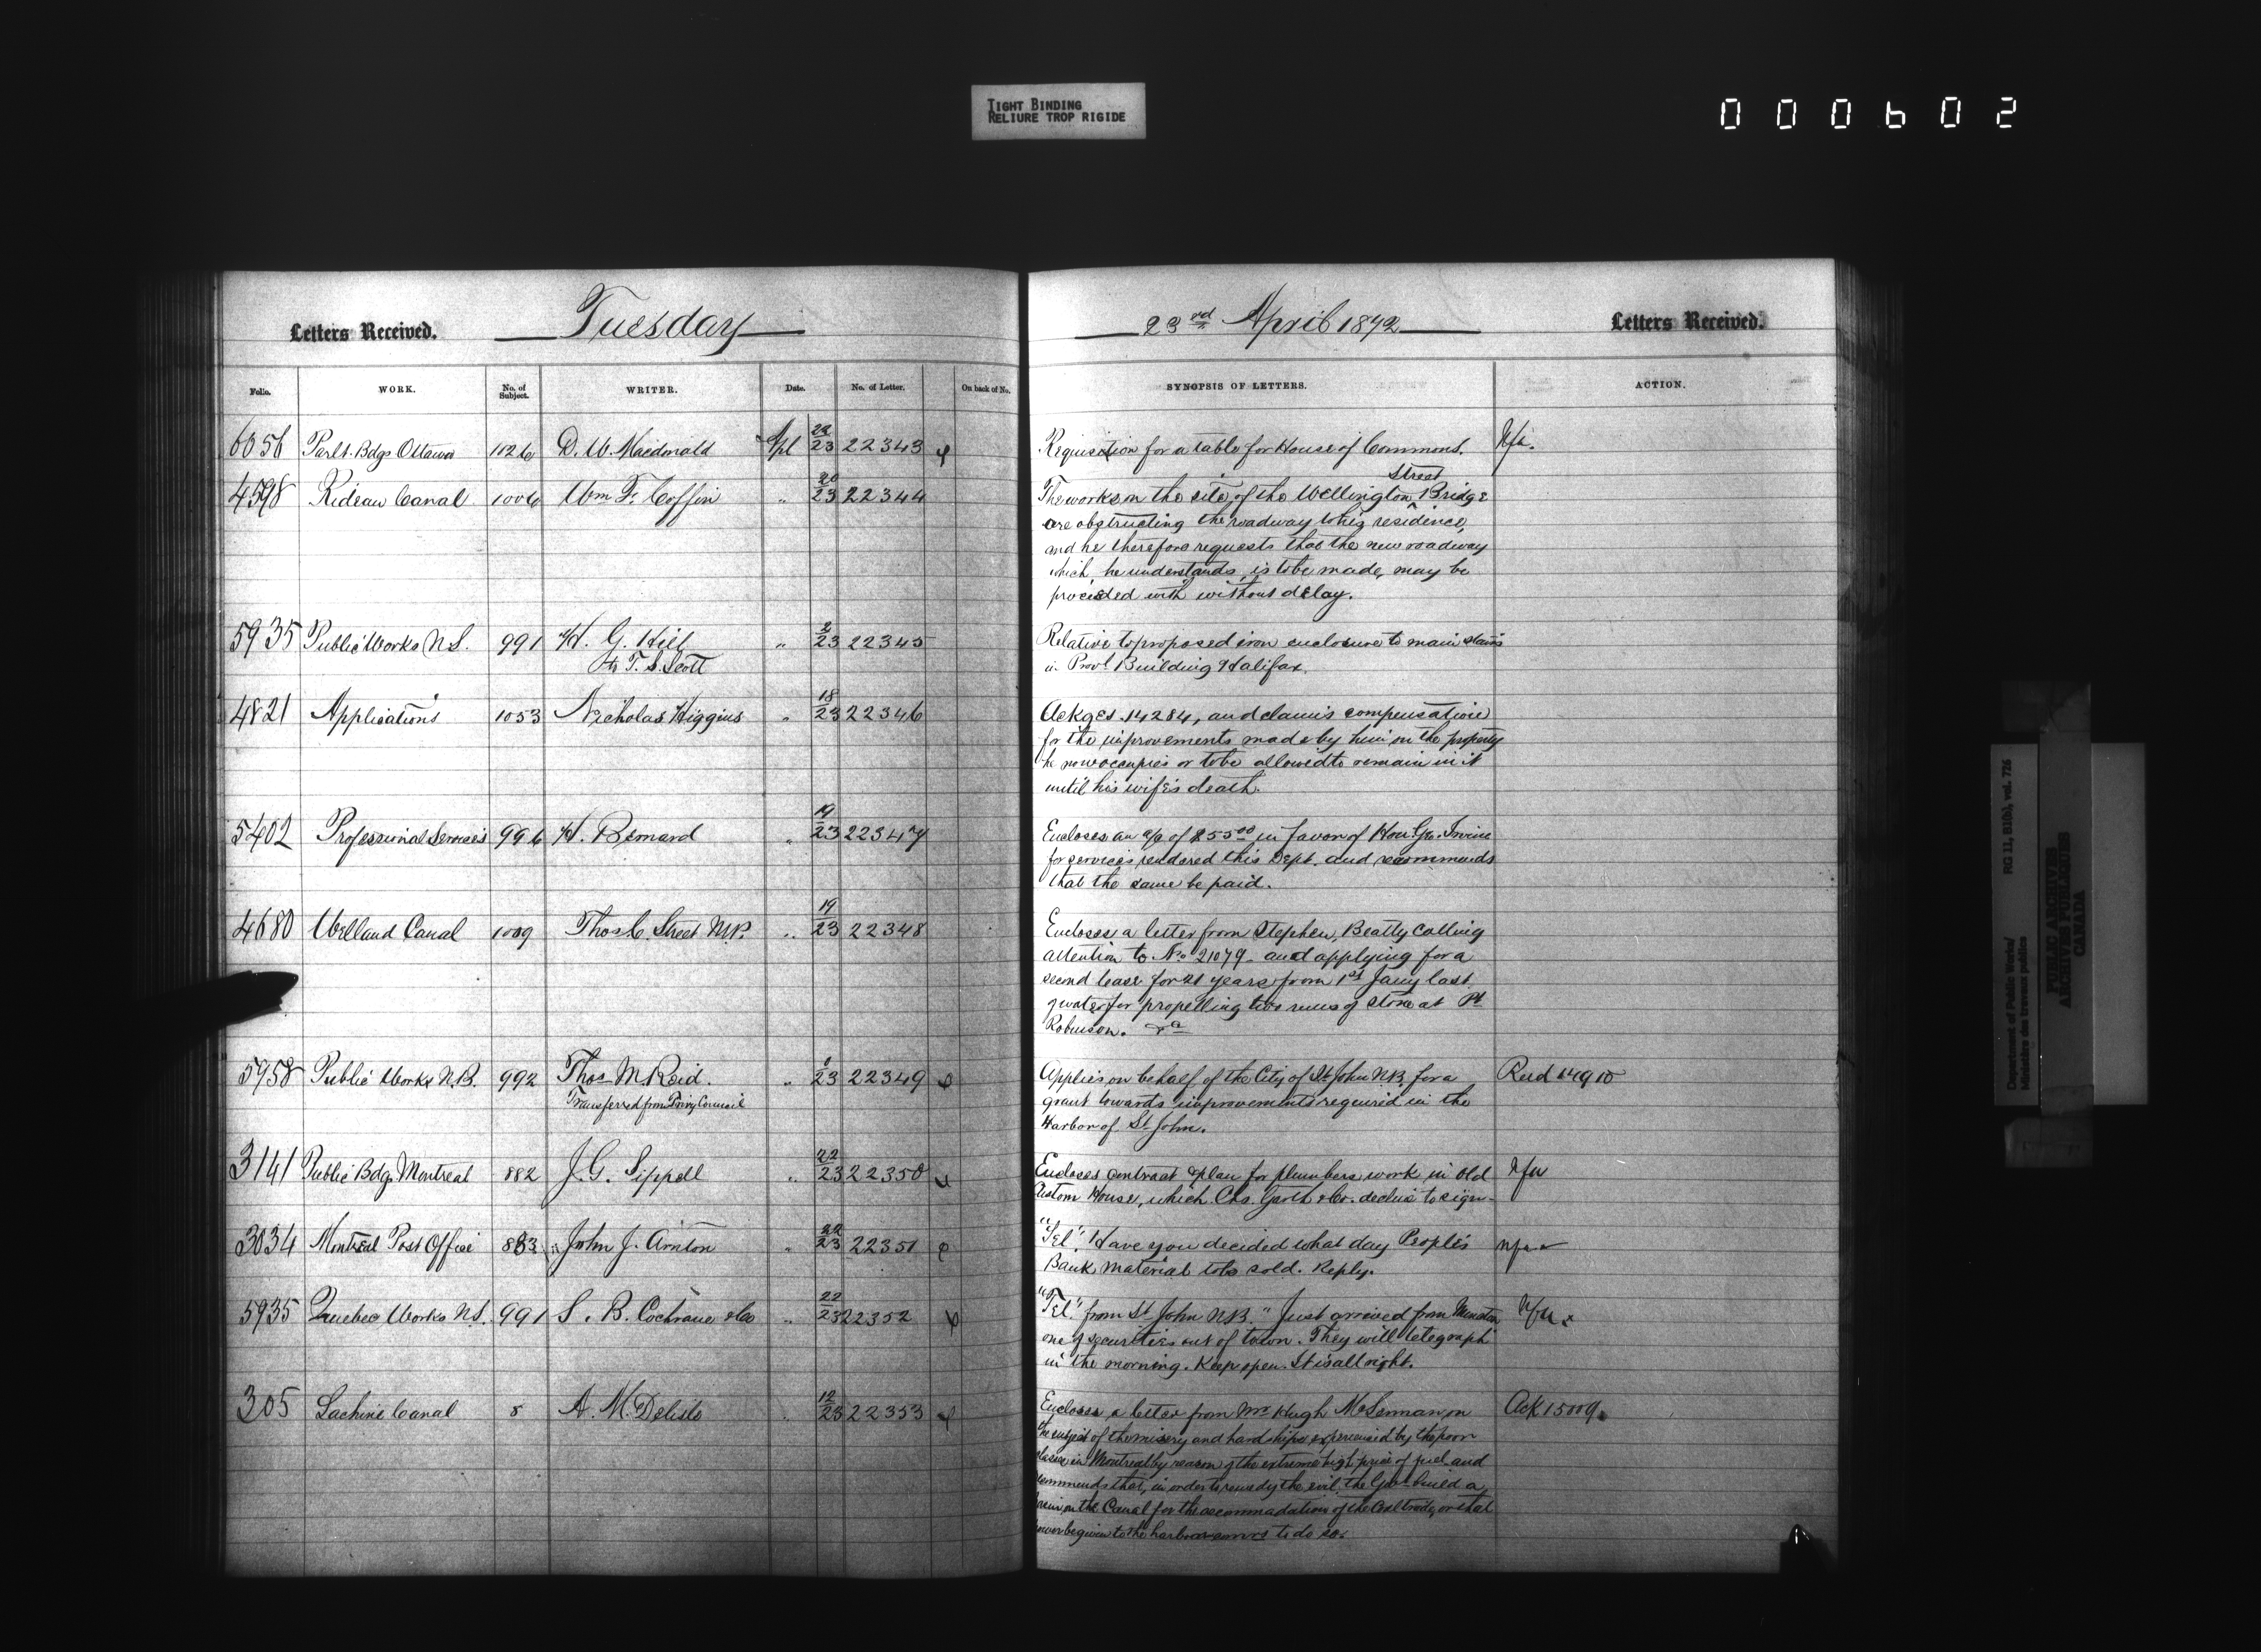 TIGHT BINDING
RELIURE TROP RIGIDE
000602
Letters Received. Tuesday
Folio. WORK. No. of Subject. WRITER. Date. No. of Letter. On back of No.
6056 Parlt. Bdgs Ottawa 1026 D. W. Macdonald Apl 22/23 22343
4598 Rideau Canal 1006 Wm F. Coffin " 20/23 22344
5935 Public Works N.S. 991 H. G. Hill " 2/23 22345
T. S. Scott
4821 Applications 1053 Nicholas Higgins " 18/23 22346
5402 Professional Services 996 H. Bernard " 19/23 22347
4680 Welland Canal 1009 Thos C. Street M.P. " 19/23 22348
5958 Public Works N.B. 992 Thos M Reid. " /23 22349
Transferred from Privy Council
3141 Public Bdgs Montreal 882 J. G. Sippell " 22/23 22350
3034 Montreal Post Office 883 John J. Arnton " 22/23 22351
5935 Quebec Works N.S. 991 S. B. Cochrane & Co " 22/23 22352
305 Lachine Canal 8 A. M. Delisle " 12/23 22353
23rd April 1872 Letters Received.
SYNOPSIS OF LETTERS. ACTION.
Requisition for a table for House of Commons. Nfa.
Street
The works on the site of the Wellington Bridge
are obstructing the roadway to his residence,
and he therefore requests that the new roadway
which, he understands, is to be made, may be
proceeded with without delay.
Relative to proposed iron enclosure to main stairs
in Provl Building Halifax.
Ackges 14284, and claims compensation
for the improvements made by him on the property
he now occupies or to be allowed to remain in it
until his wife's death.
Encloses an a/c of $55 00 in favor of Hon. Geo. Irvine
for services rendered this Dept. and recommends
that the same be paid.
Encloses a letter from Stephen Beatty calling
attention to No. 21079 and applying for a
second lease for 21 years from 1st Jany last
of water for propelling two runs of stone at Pt
Robinson. &a
Applies on behalf of the City of St. John N.B. for a
grant towards improvements required in the
Harbor of St John.
Encloses contract & plan for plumbers work in old
Custom House, which Chs. Garth & Co. decline to sign. Nfa
"Tel". Have you decided what day People's Nfa
Bank material to be sold. Reply.
"Tel." from St. John N.B. "Just arrived from Moncton Nfa
one of securities out of town. They will telegraph
in the morning. Keep open. It is all right.
Encloses a letter from Mr. Hugh McLennan, on Ack 15009
the subject of the misery and hardships experienced by the poor
classes in Montreal by reason of the extreme high price of fuel and
recommends that, in order to remedy the evil, the Govt build a
basin on the Canal for the accommodation of the Coal trade, or that
power be given to the harbor comrs to do so.
Department of Public Works/ RG 11, B1(b), vol. 726
Ministère des travaux publics
PUBLIC ARCHIVES
ARCHIVES PUBLIQUES
CANADA